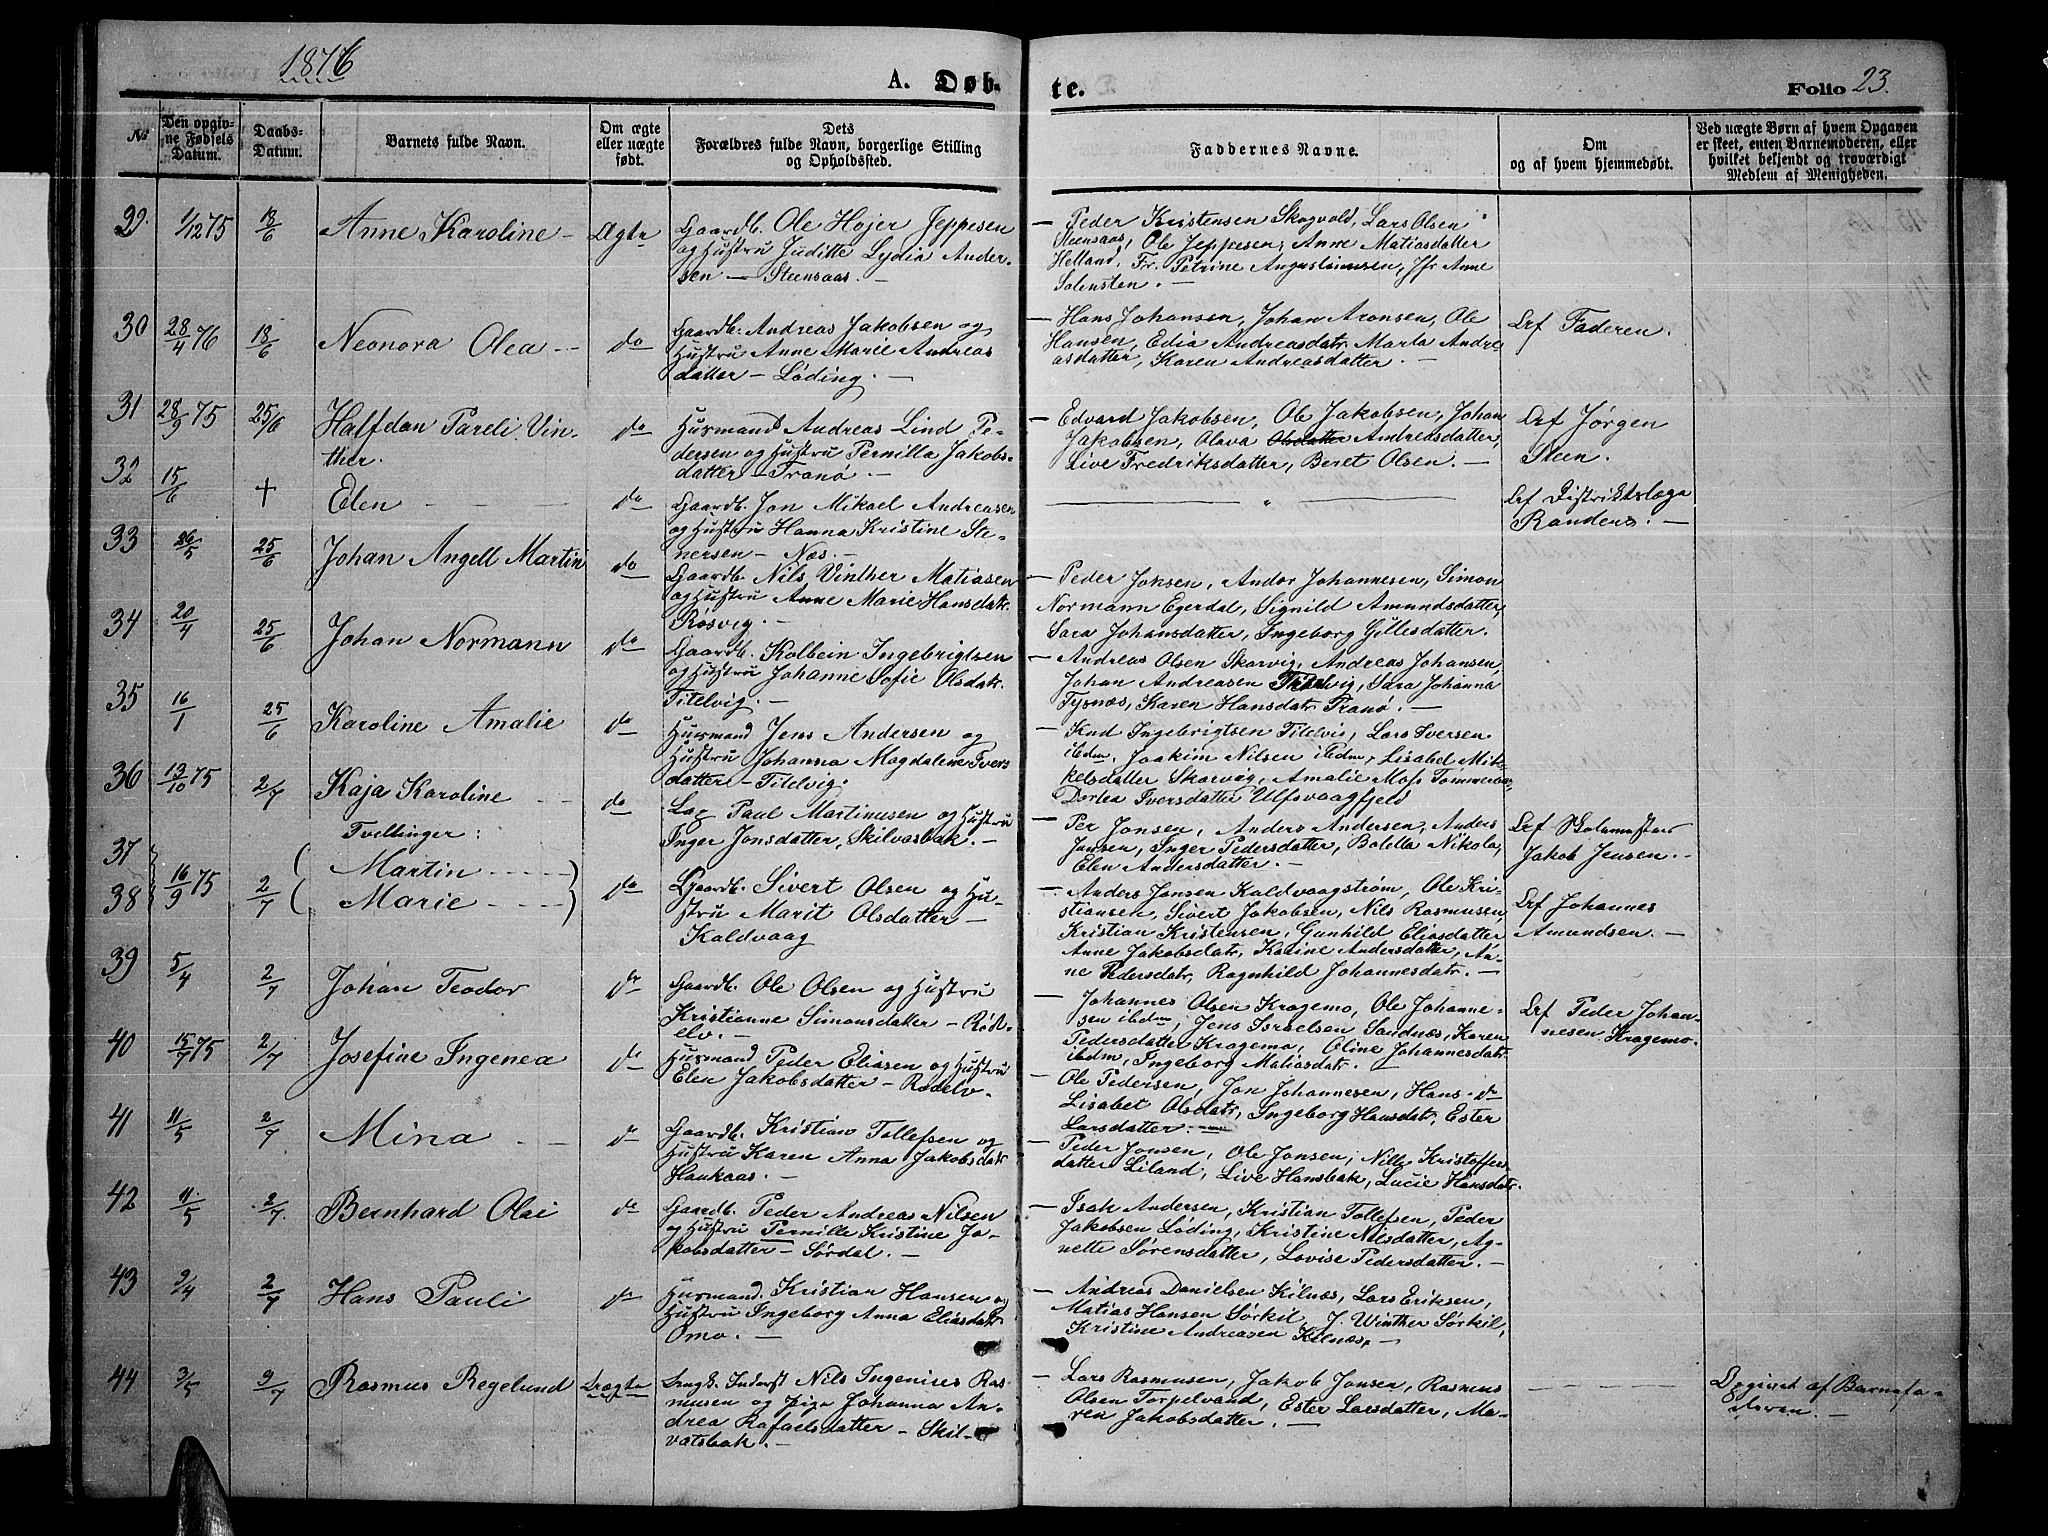 1876
A. Døb-
te.
Folio 23.
No
Den opgiv-
ne Fødsels
Datum.
Daabs-
Datum.
Barnets fulde Navn.
Om ægte
eller uægte
født.
Dets
Forældres fulde Navn, borgerlige Stilling
og Opholdssted.
Faddernes Navne.
Om
og af hvem hjemmedøbt.
Ved uægte Børn af hvem Opgaven
er skeet, enten Barnemoderen, eller
hvilket bekjendt og troværdigt
Medlem af Menigheden.
29. 1/12 75 18/6 Anne Karoline – Ægte
Gaardb. Ole Hojer Jeppesen
og Hustru Juditte Lydia Ander-
sen – Steensaas. –
– Peder Kristensen Skogvold, Lars Olsen
Steensaas, Ole Jeppesen, Anne Matiasdatter
Helland, Fr. Petrine Augustinusen, Jfr Anne
Solensten. –
30 28/4 76 18/6 Neonora Olea – do
Gaardb. Andreas Jakobsen og
Hustru Anne Marie Andreas
datter – Løding. –
– Hans Johansen, Johan Aronsen, Ole
Hansen, Edia Andreasdatr, Marta Andre-
asdatter, Karen Andreasdatter. –
Lrf Faderen.
31 28/9 75 25/6 Halfdan Pareli Vin-
ther. do
Husmand Andreas Lind Pe-
dersen og Hustru Pernilla Jakobs-
datter – Tranø. –
– Edvard Jakobsen, Ole Jakobsen, Johan
Jakobsen, Olava Olsdatter Andreasdatter,
Live Fredriksdatter, Beret Olsen. –
Lrf Jørgen
Steen.
32 15/6 + Elen – – – do
Gaardb. Jon Mikael Andreasen
og Hustru Hanna Kristine Ste-
nersen – Næs. –
"
Lrf Distriktslæge
Randers. –
33 26/5 25/6 Johan Angell Martin do
Gaardb. Nils Vinther Matiasen
og Hustru Anne Marie Hansdatr.
Røsvig. –
– Peder Jonsen, Andor Johannesen, Simon
Normann Egerdal, Signild Amundsdatter,
Sara Johansdatter, Ingeborg Gillesdatter.
34 20/4 25/6 Johan Normann do
Gaardb. Kolbein Ingebrigtsen
og Hustru Johanne Sofie Olsdatr.
Titelvig. –
– Andreas Olsen Skarvig, Andreas Johansen,
Johan Andreasen Titelvig, Sara Johanna
Tysnæs, Karen Hansdatr Tranø. –
35 16/1 25/6 Karoline Amalie do
Husmand Jens Andersen og
Hustru Johanna Magdalene Ivers
datter – Titelvig.
– Knd Ingebrigtsen Titelvig, Lars Iversen
ibdm, Joakim Nilsen ibdm, Lisabet Mik-
kelsdatter Skarvig, Amalie Moss Tommeraas,
Dortea Iversdatter Ulfsvaagfjeld
36 13/10 75 2/7 Kaja Karoline – do
Lap Paul Martinusen og Hustru
Inger Jonsdatter, Skilvasbak. –
– Per Jonsen, Anders Andersen, Anders
Jonsen, Inger Pedersdatter, Boletta Nikola,
Elen Andersdatter. –
Lrf Skolemester
Jakob Jensen. –
Tvillinger:
37 16/9 75 2/7 Martin – – do
38 Marie – –
Gaardb. Sivert Olsen og Hu-
stru Marit Olsdatter –
Kaldvaag
– Anders Jonsen Kaldvaagstrøm, Ole Kri-
stiansen, Sivert Jakobsen, Nils Rasmussen,
Kristian Kristensen, Gunhild Eliasdatter
Anne Jakobsdatr, Karine Andersdatter, An-
ne Pedersdatr, Ragnhild Johannesdatr. –
Lrf Johannes
Amundsen. –
39 5/4 2/7 Johan Teodor do
Gaardb. Ole Olsen og Hustru
Kristianne Simonsdatter – Rød-
elv. –
– Johannes Olsen Kragemo, Ole Johanne-
sen ibdm, Jens Israelsen Sandnæs, Karen
Pedersdatter Kragemo, Oline Johannesdatr
ibdm, Ingeborg Matiasdatr. –
Lrf Peder Johan-
nesen Kragemo.
40 15/7 75 2/7 Josefine Ingenea do
Husmand Peder Eliasen og Hustru
Elen Jakobsdatter – Rødelv.
– Ole Pedersen, Jon Johannesen, Hans do
Lisabet Olsdatr, Ingeborg Hansdatr, Ester
Larsdatter. –
41 11/5 2/7 Mina – – do
Gaardb. Kristian Tollefsen og
Hustru Karen Anna Jakobsdatr
Haukaas. –
– Peder Jonsen, Ole Jonsen, Nille Kristoffers
datter Liland, Live Hansbak, Lucie Hansdatr.
42 11/5 2/7 Bernhard Olai do
Gaardb. Peder Andreas Nilsen
og Hustru Pernille Kristine Ja-
kobsdatter – Sørdal. –
– Isak Andersen, Kristian Tollefsen, Peder
Jakobsen Løding, Kristine Nilsdatter, Ag-
nette Sørensdatter, Lovise Pedersdatter. –
43 9/4 2/7 Hans Pauli do
Husmand. Kristian Hansen og
Hustru Ingeborg Anna Eliasdatr
Omo. –
– Andreas Danielsen Kilnæs, Lars Eriksen,
Matias Hansen Sørkil, J. Winther Sørkil,
Kristine Andreasen Kilnæs. –
44 3/5 9/7 Rasmus Regelund Uægte
Ungk. Inderst Nils Ingenius Ras-
musen og Pige Johanna An-
drea Rafaelsdatter – Skil-
vatsbak. –
– Lars Rasmusen, Jakob Jonsen, Rasmus
Olsen Torpelvand, Ester Larsdatter, Ma-
ren Jakobsdatter. –
Opgivet af Barnefa-
deren. –